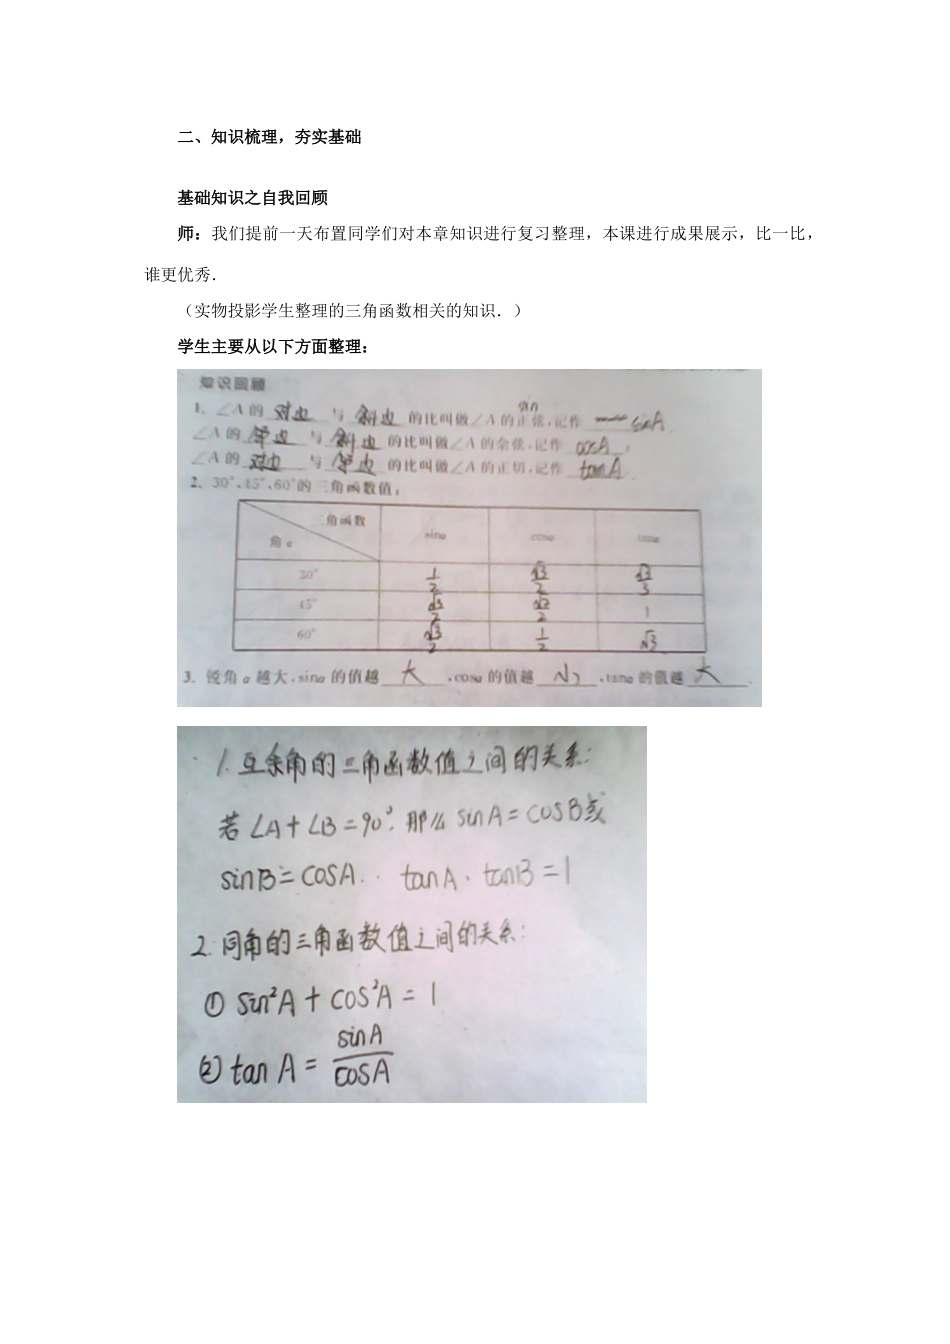 二、知识梳理，夯实基础
基础知识之自我回顾
师：我们提前一天布置同学们对本章知识进行复习整理，本课进行成果展示，比一比，
谁更优秀．
（实物投影学生整理的三角函数相关的知识．）
学生主要从以下方面整理：
知识回顾
1. ∠A 的 对边 与 斜边 的比叫做∠A 的正弦,记作 sinA .
∠A 的 邻边 与 斜边 的比叫做∠A 的余弦,记作 cosA ;
∠A 的 对边 与 邻边 的比叫做∠A 的正切,记作 tanA .
2. 30°、45°、60°的三角函数值:
三角函数
角 α sinα cosα tanα
30° 1/2 √3/2 √3/3
45° √2/2 √2/2 1
60° √3/2 1/2 √3
3. 锐角 α 越大,sinα 的值越 大 ,cosα 的值越 小 ,tanα 的值越 大 .
1. 互余角的三角函数值之间的关系:
若 ∠A + ∠B = 90°, 那么 sinA = cosB 或
sinB = cosA. tanA · tanB = 1
2. 同角的三角函数值之间的关系:
① sin²A + cos²A = 1
② tanA = sinA/cosA